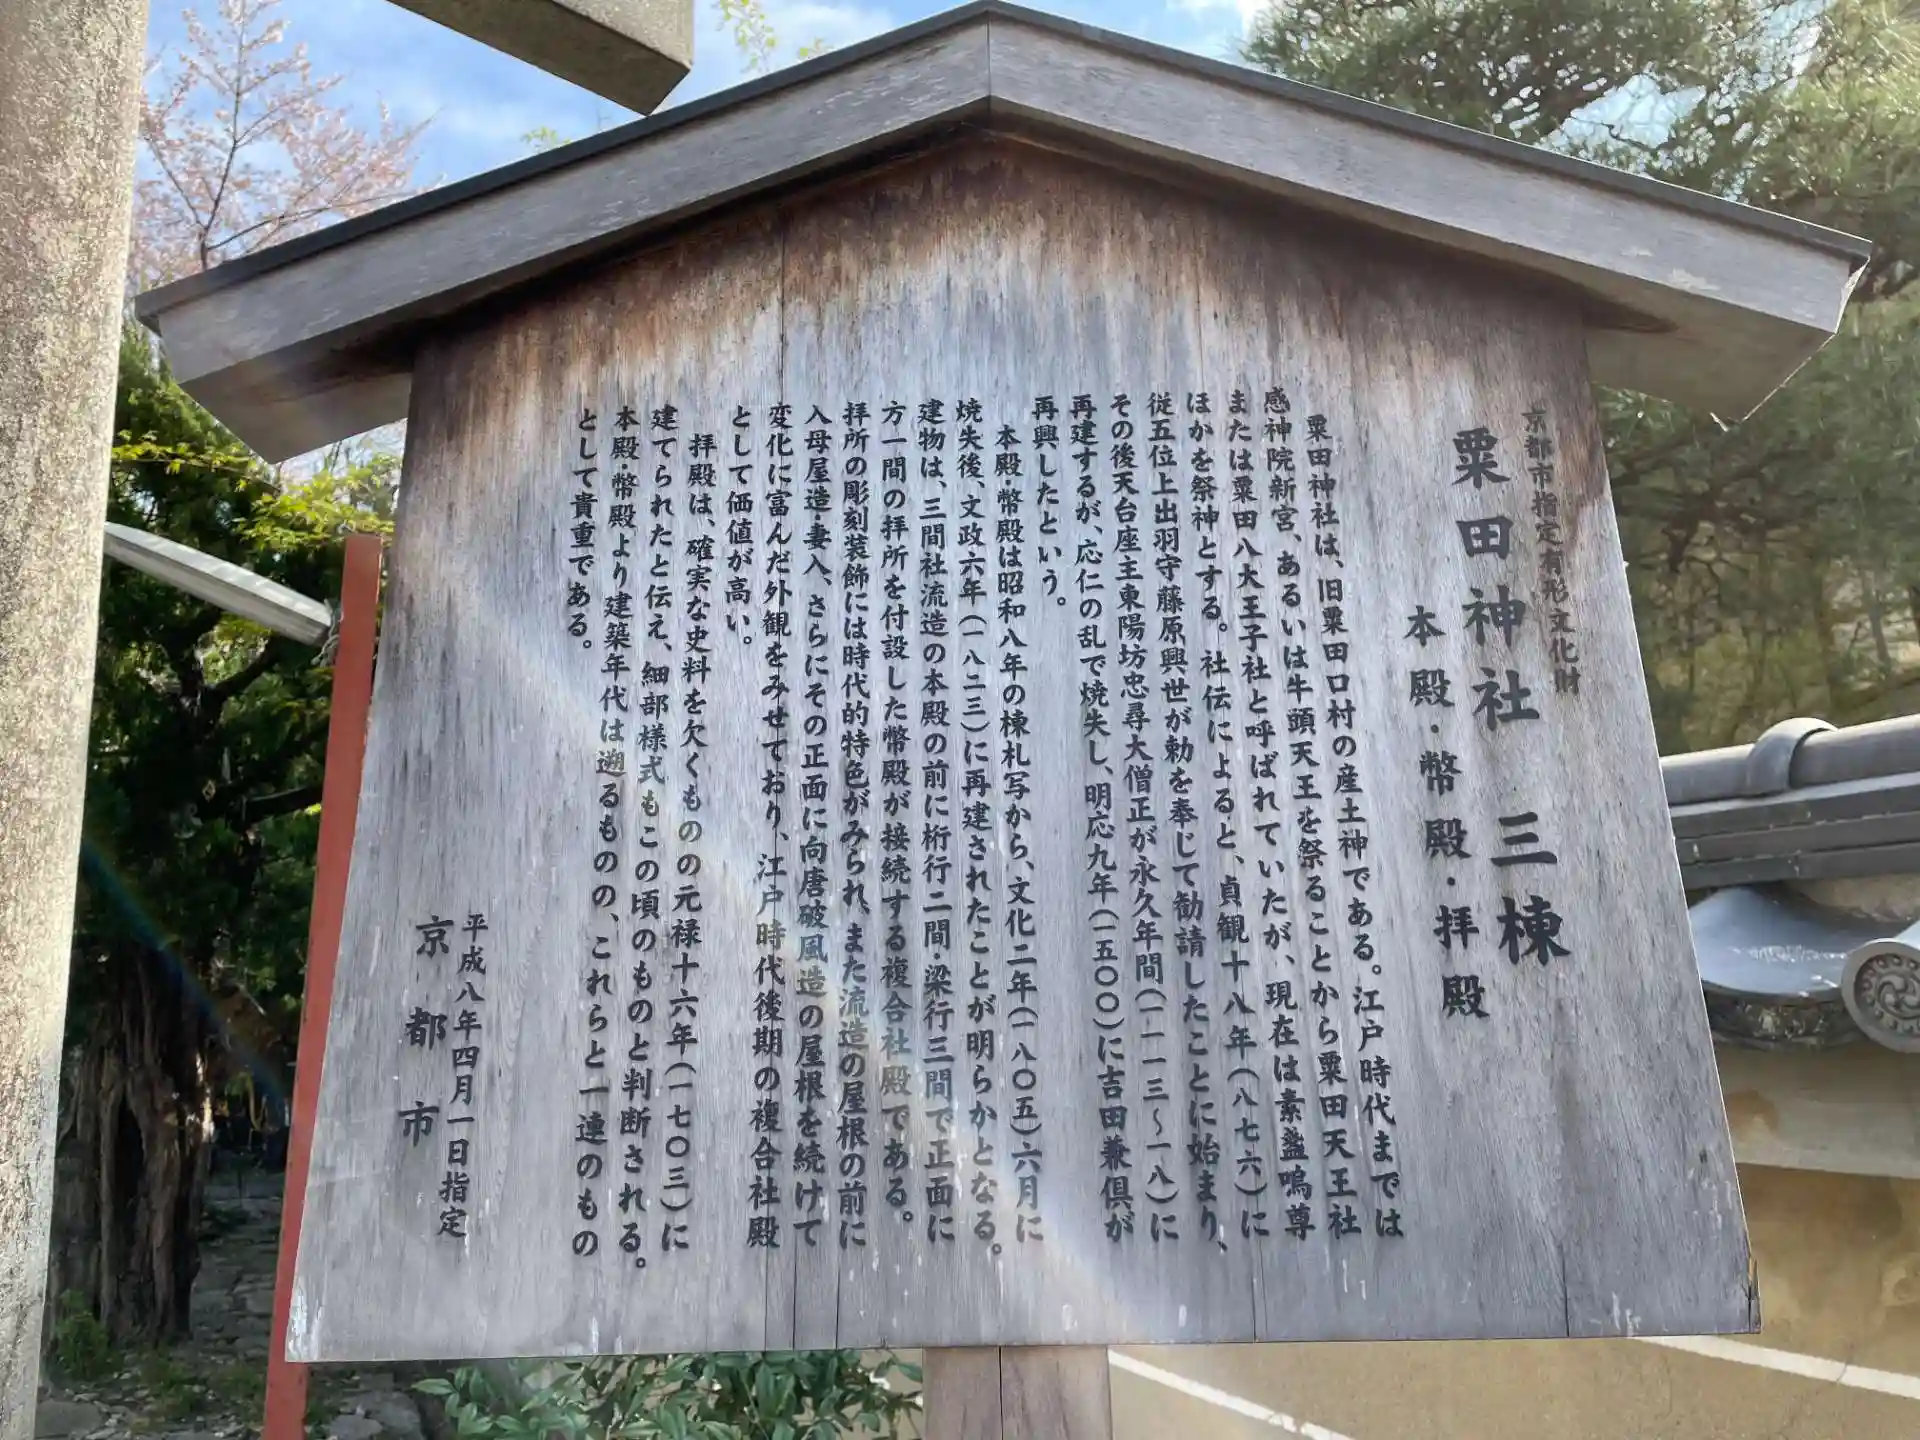 京都市指定有形文化財
粟田神社 三棟
本殿・幣殿・拝殿
粟田神社は、旧粟田口村の産土神である。江戸時代までは
感神院新宮、あるいは牛頭天王を祭ることから粟田天王社
または粟田八大王子社と呼ばれていたが、現在は素盞嗚尊
ほかを祭神とする。社伝によると、貞観十八年(八七六)に
従五位上出羽守藤原興世が勅を奉じて勧請したことに始まり、
その後天台座主東陽坊忠尋大僧正が永久年間(一一一三~一八)に
再建するが、応仁の乱で焼失し、明応九年(一五〇〇)に吉田兼倶が
再興したという。
本殿・幣殿は昭和八年の棟札写から、文化二年(一八〇五)六月に
焼失後、文政六年(一八二三)に再建されたことが明らかとなる。
建物は、三間社流造の本殿の前に桁行二間・梁行三間で正面に
方一間の拝所を付設した幣殿が接続する複合社殿である。
拝所の彫刻装飾には時代的特色がみられ、また流造の屋根の前に
入母屋造・妻入、さらにその正面に向唐破風造の屋根を続けて
変化に富んだ外観をみせており、江戸時代後期の複合社殿
として価値が高い。
拝殿は、確実な史料を欠くものの元禄十六年(一七〇三)に
建てられたと伝え、細部様式もこの頃のものと判断される。
本殿・幣殿より建築年代は遡るものの、これらと一連のもの
として貴重である。
平成八年四月一日指定
京都市